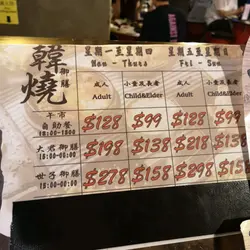 韓燒御膳
星期一至星期四 星期五至星期日
Mon - Thurs Fri - Sun
成人 小童及長者 成人 小童及長者
Adult Child&Elder Adult Child&Elder
午市
自助餐
$128 $99 $128 $99
大君御膳
$198 $138 $218 $158
世子御膳
$278 $158 $298 $158